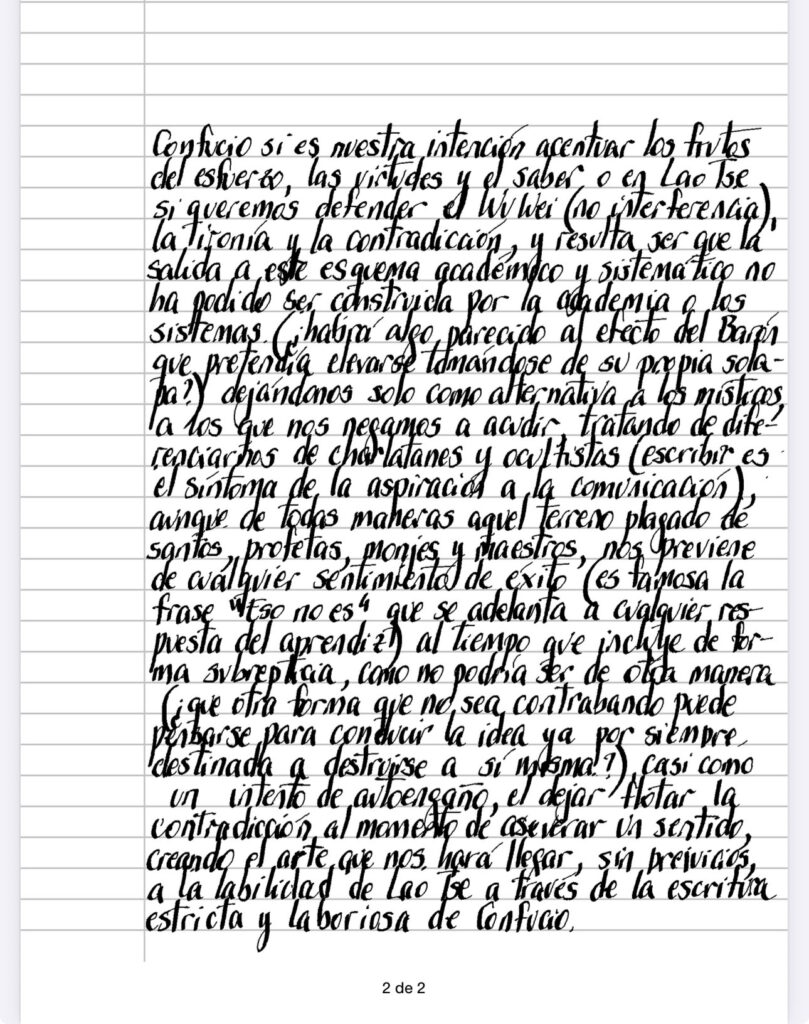 Confucio si es nuestra intención acentuar los frutos
del esfuerso, las virtudes y el saber o en Lao Tse
si queremos defender el WuWei (no interferencia),
la ironía y la contradicción, y resulta ser que la
salida a este esquema académico y sistemático no
ha podido ser construida por la academia o los
sistemas. (¿habrá algo parecido al efecto del Barón
que pretendía elevarse tomándose de su propia sola-
pa?) dejándonos solo como alternativa a los místicos,
a los que nos negamos a acudir, tratando de dife-
renciarnos de charlatanes y ocultistas (escribir es
el síntoma de la aspiración a la comunicación),
aunque de todas maneras aquel terreno plagado de
santos, profetas, monjes y maestros, nos previene
de cualquier sentimiento de éxito (es famosa la
frase "Eso no es" que se adelanta a cualquier res-
puesta del aprendiz!) al tiempo que incluye de for-
ma subrepticia, como no podría ser de otra manera
(¡que otra forma que no sea contrabando puede
pensarse para conducir la idea ya por siempre
destinada a destruirse a sí misma!?), casi como
un intento de autoengaño, el dejar flotar la
contradicción al momento de aseverar un sentido,
creando el arte que nos hará llegar, sin prejuicios,
a la labilidad de Lao Tse a través de la escritura
estricta y laboriosa de Confucio.
2 de 2